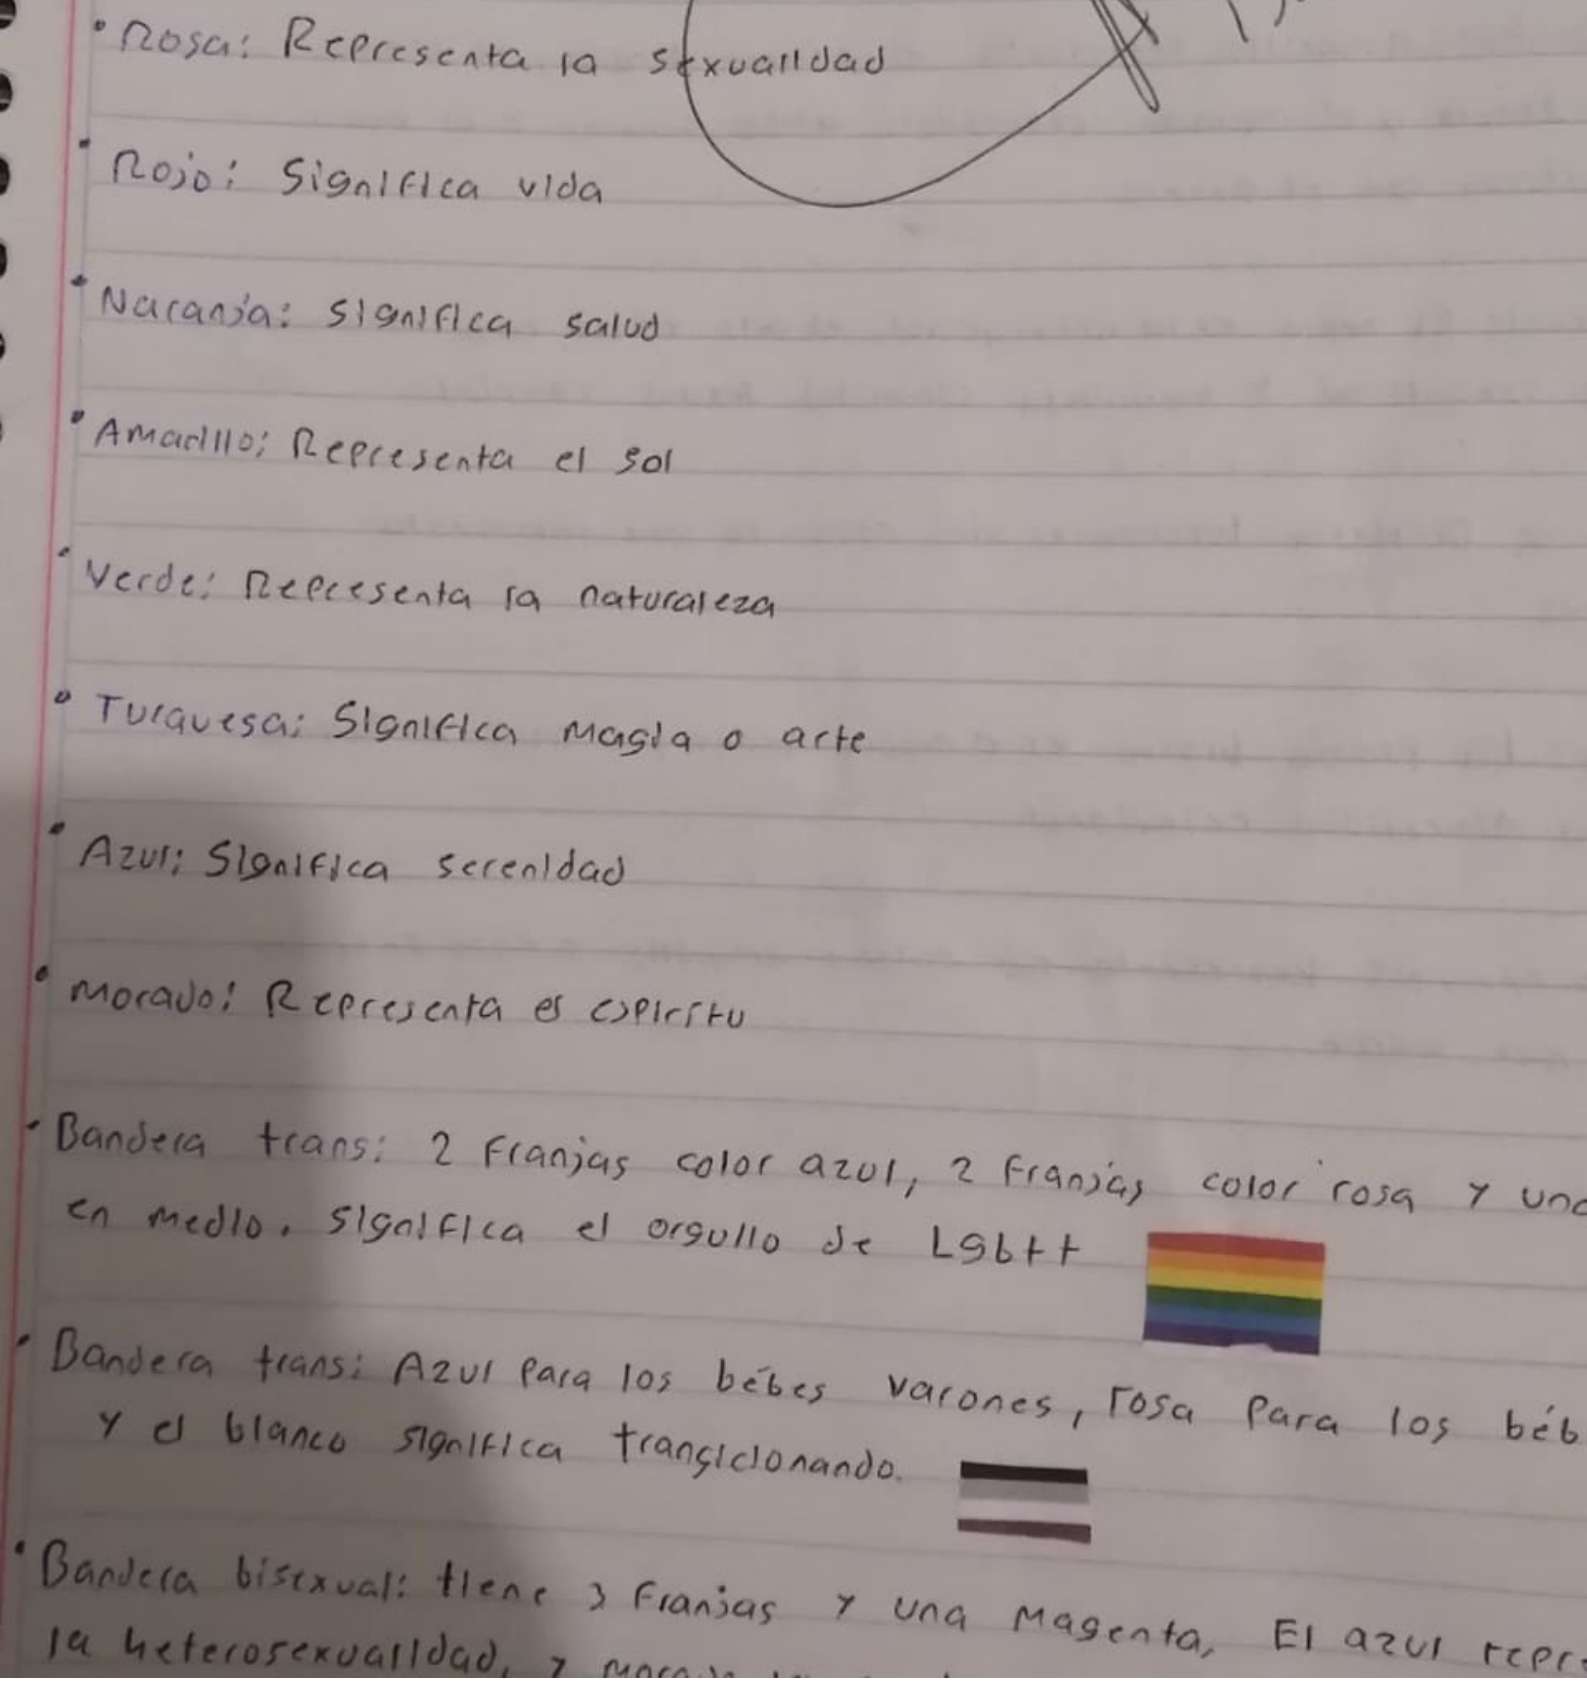 • Rosa: Representa la sexualidad
• Rojo: Significa vida
• Naranja: significa salud
• Amarillo: Representa el sol
• Verde: Representa la naturaleza
• Turquesa: Significa magia o arte
• Azul: Significa serenidad
• Morado: Representa el espiritu
• Bandera trans: 2 Franjas color azul, 2 franjas color rosa y una
en medio. significa el orgullo de Lgbtt
• Bandera trans: Azul para los bébes varones, rosa para los béb
y el blanco significa trangicionando.
• Bandera bisexual: tiene 3 franjas y una magenta, El azul repre
la heterosexualidad, y